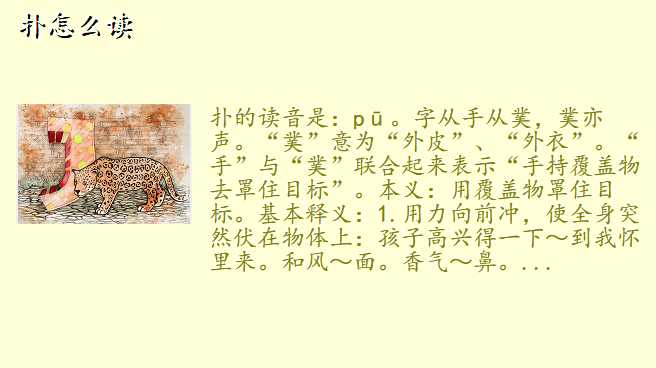 扑怎么读
扑的读音是：pū。字从手从菐，菐亦
声。“菐”意为“外皮”、“外衣”。“
手”与“菐”联合起来表示“手持覆盖物
去罩住目标”。本义：用覆盖物罩住目
标。基本释义：1.用力向前冲，使全身突
然伏在物体上：孩子高兴得一下～到我怀
里来。和风～面。香气～鼻。...